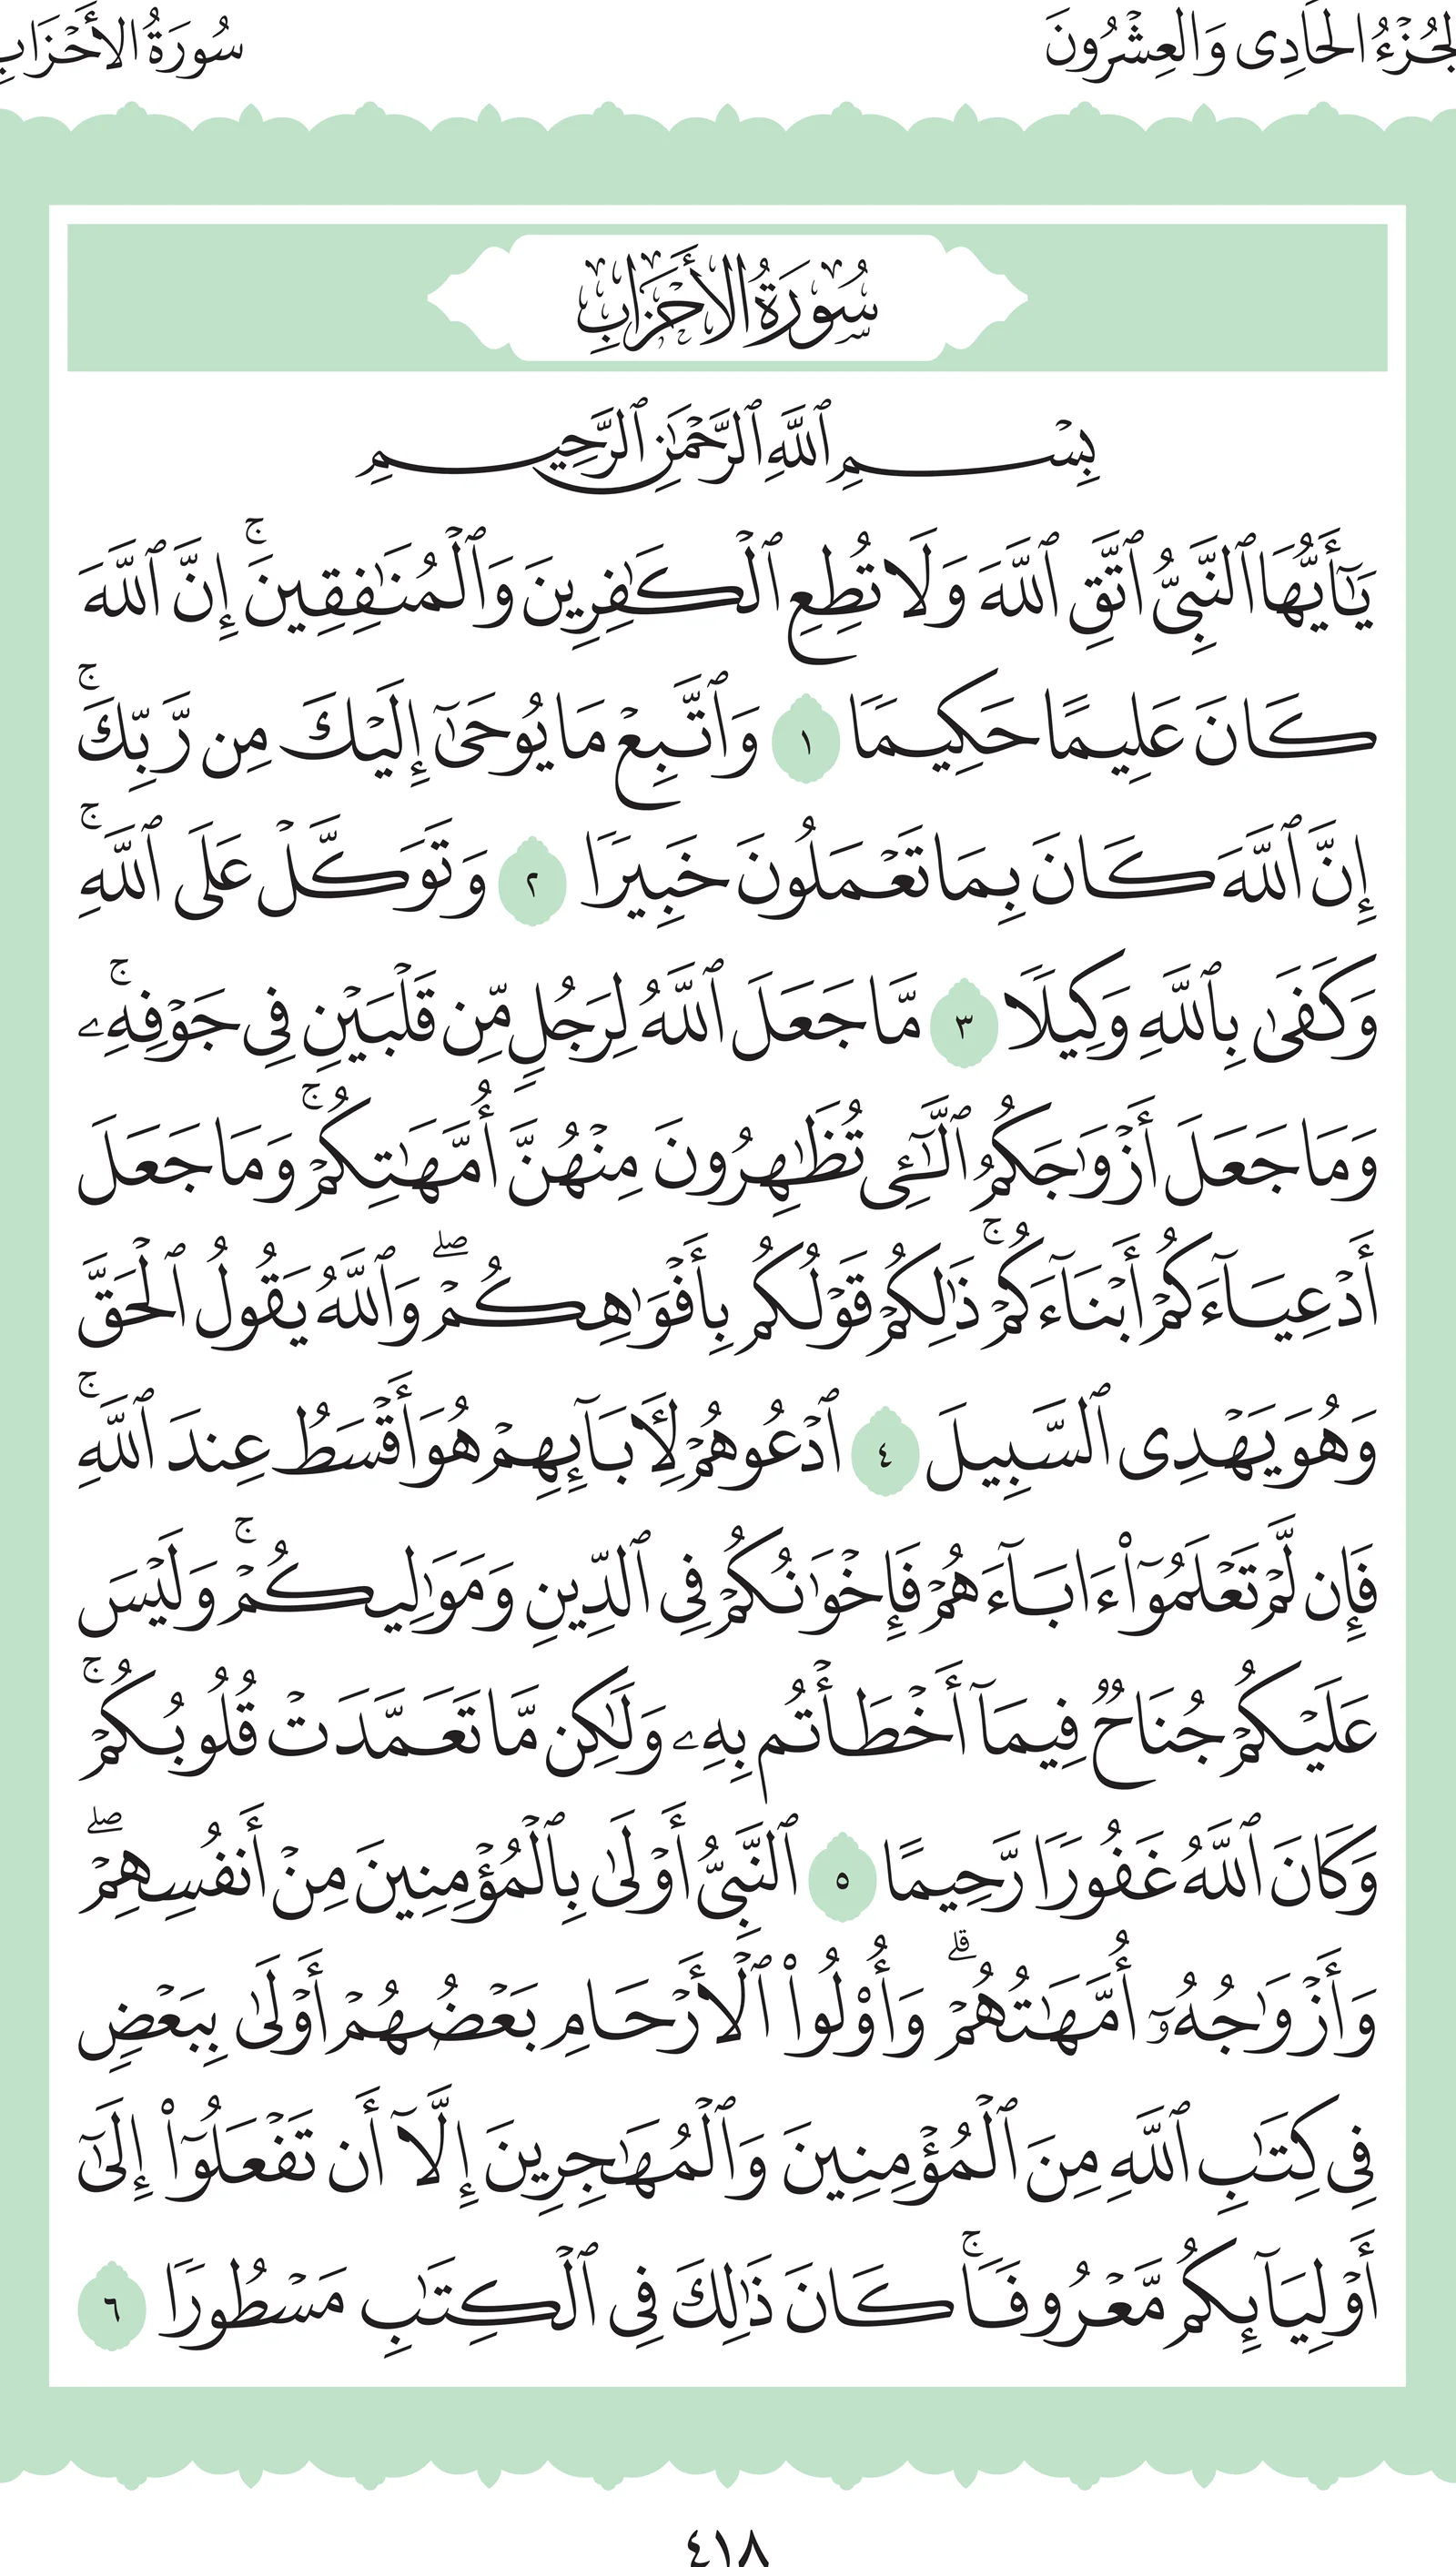 الجُزْءُ الحَادِى وَالعِشْرُونَ
سُورَةُ الأَحْزَابِ
سُورَةُ الأَحْزَابِ
بِسْمِ ٱللَّهِ ٱلرَّحْمَٰنِ ٱلرَّحِيمِ
يَٰٓأَيُّهَا ٱلنَّبِىُّ ٱتَّقِ ٱللَّهَ وَلَا تُطِعِ ٱلْكَٰفِرِينَ وَٱلْمُنَٰفِقِينَ ۚ إِنَّ ٱللَّهَ
كَانَ عَلِيمًا حَكِيمًا ١ وَٱتَّبِعْ مَا يُوحَىٰٓ إِلَيْكَ مِن رَّبِّكَ ۚ
إِنَّ ٱللَّهَ كَانَ بِمَا تَعْمَلُونَ خَبِيرًا ٢ وَتَوَكَّلْ عَلَى ٱللَّهِ ۚ
وَكَفَىٰ بِٱللَّهِ وَكِيلًا ٣ مَّا جَعَلَ ٱللَّهُ لِرَجُلٍ مِّن قَلْبَيْنِ فِى جَوْفِهِۦ ۚ
وَمَا جَعَلَ أَزْوَٰجَكُمُ ٱلَّٰٓـِٔى تُظَٰهِرُونَ مِنْهُنَّ أُمَّهَٰتِكُمْ ۚ وَمَا جَعَلَ
أَدْعِيَآءَكُمْ أَبْنَآءَكُمْ ۚ ذَٰلِكُمْ قَوْلُكُم بِأَفْوَٰهِكُمْ ۖ وَٱللَّهُ يَقُولُ ٱلْحَقَّ
وَهُوَ يَهْدِى ٱلسَّبِيلَ ٤ ٱدْعُوهُمْ لِءَابَآئِهِمْ هُوَ أَقْسَطُ عِندَ ٱللَّهِ ۚ
فَإِن لَّمْ تَعْلَمُوٓا۟ ءَابَآءَهُمْ فَإِخْوَٰنُكُمْ فِى ٱلدِّينِ وَمَوَٰلِيكُمْ ۚ وَلَيْسَ
عَلَيْكُمْ جُنَاحٌ فِيمَآ أَخْطَأْتُم بِهِۦ وَلَٰكِن مَّا تَعَمَّدَتْ قُلُوبُكُمْ ۚ
وَكَانَ ٱللَّهُ غَفُورًا رَّحِيمًا ٥ ٱلنَّبِىُّ أَوْلَىٰ بِٱلْمُؤْمِنِينَ مِنْ أَنفُسِهِمْ ۖ
وَأَزْوَٰجُهُۥٓ أُمَّهَٰتُهُمْ ۗ وَأُو۟لُوا۟ ٱلْأَرْحَامِ بَعْضُهُمْ أَوْلَىٰ بِبَعْضٍ
فِى كِتَٰبِ ٱللَّهِ مِنَ ٱلْمُؤْمِنِينَ وَٱلْمُهَٰجِرِينَ إِلَّآ أَن تَفْعَلُوٓا۟ إِلَىٰٓ
أَوْلِيَآئِكُم مَّعْرُوفًا ۚ كَانَ ذَٰلِكَ فِى ٱلْكِتَٰبِ مَسْطُورًا ٦
٤١٨